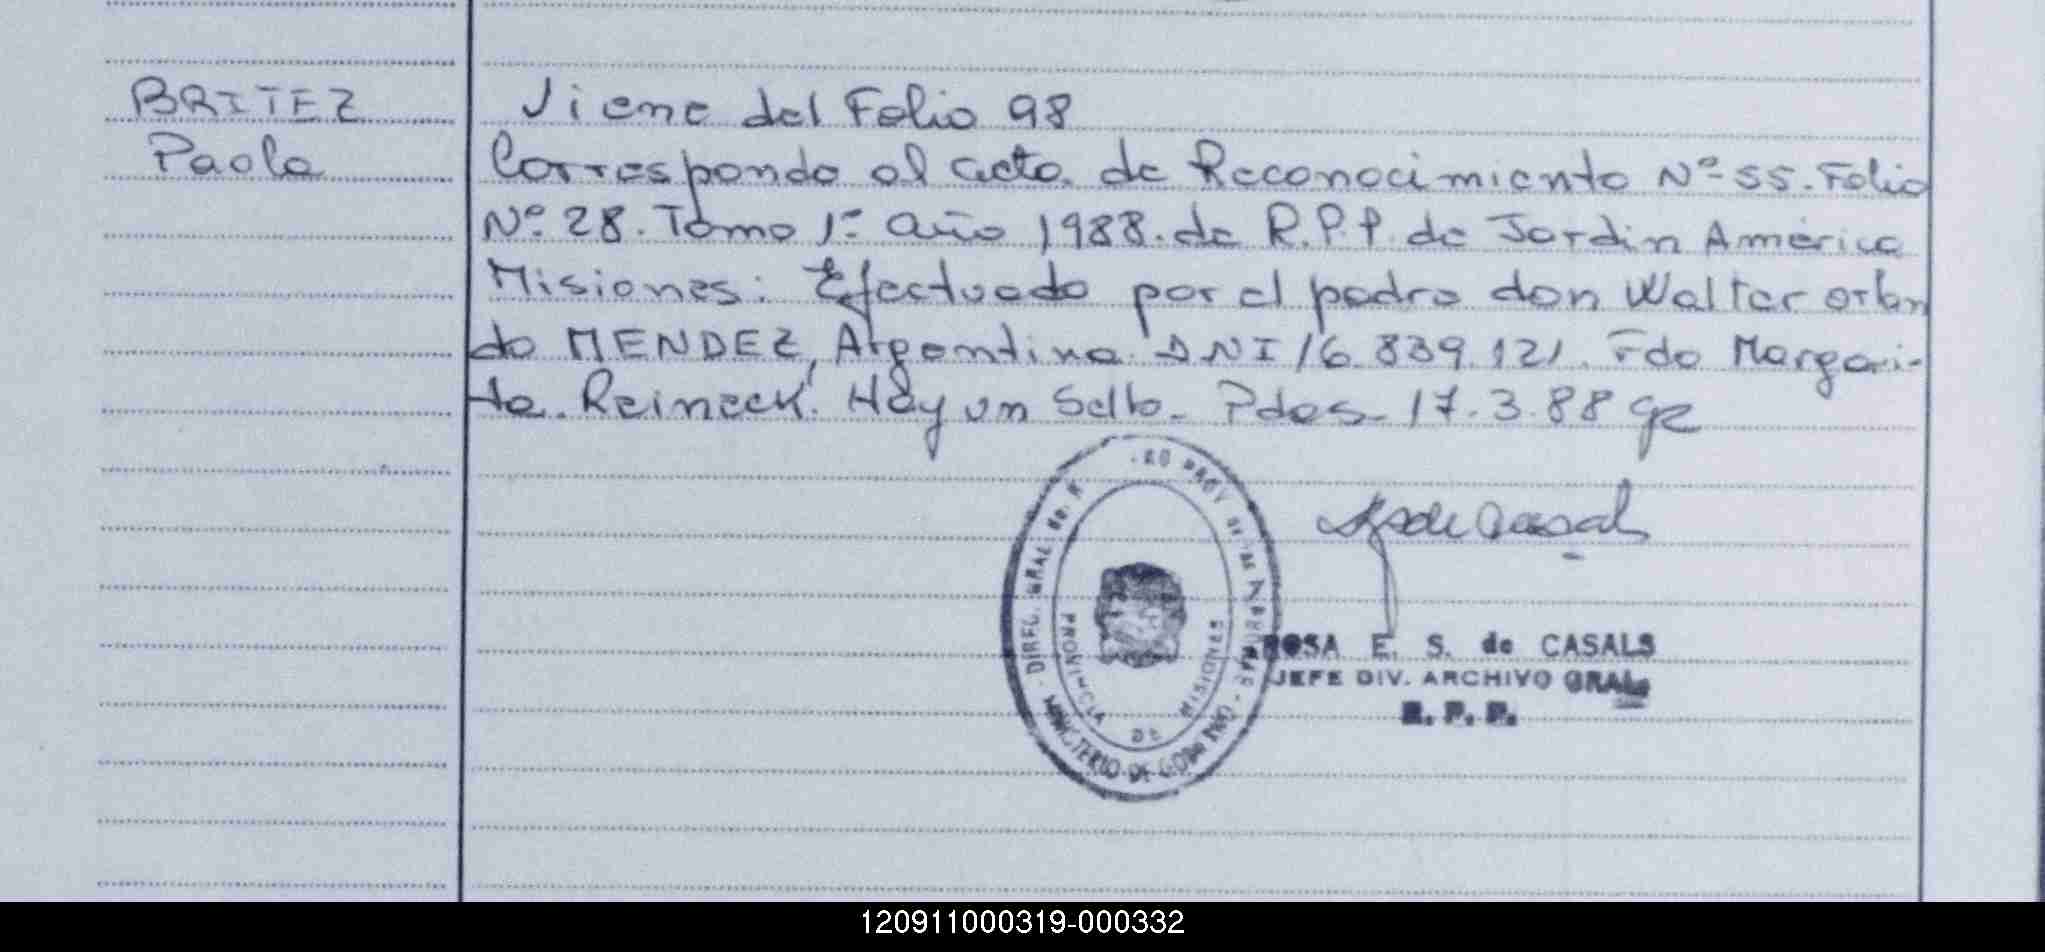 BRITEZ
Paola
Viene del Folio 98
Corresponde al acta de Reconocimiento Nº 55. Folio
Nº 28. Tomo 1º año 1988. de R.P.P. de Jardin América
Misiones: Efectuado por el padre don Walter Orlan
do MENDEZ, Argentino DNI 16.839.121. Fdo Margari-
ta. Reineck. Hay un Sello. Pdas. 17.3.88
DIREC. GRAL de. R PROV de las PERSONAS
MINISTERIO DE GOBIERNO
PROVINCIA DE MISIONES
ROSA E. S. de CASALS
JEFE DIV. ARCHIVO GRAL.
R. P. P.
120911000319-000332